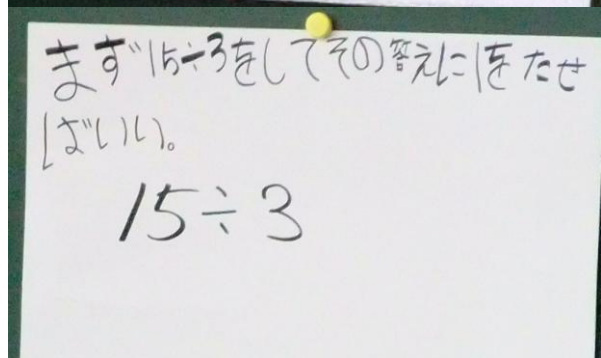 まず15÷3をしてその答えに1をたせ
ばいい。
15÷3